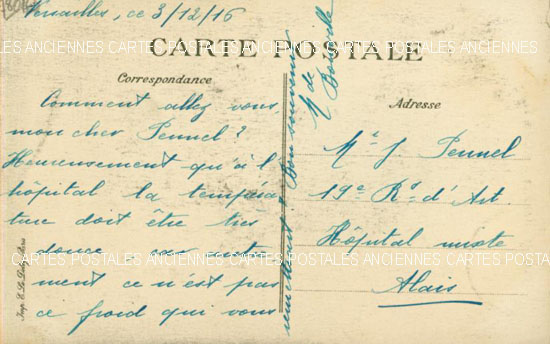 Versailles, ce 3/12/16
CARTE POSTALE
CARTES POSTALES ANCIENNES CARTES POSTALES ANCIENNES CARTES POSTALES ANCIENNES
Correspondance
Comment allez vous,
mon cher Pennel ?
Heureusement qu'à l'
hôpital la tempéra
ture doit être très
douce
ment ce n'est pas
ce froid qui vous
Bon souvenir
M de
Adresse
Mr J. Pennel
19e Rt d'Art.
Hôpital mixte
Alais
CARTES POSTALES ANCIENNES CARTES POSTALES ANCIENNES CARTES POSTALES ANCIENNES
Imp. E. Le Deley, Paris